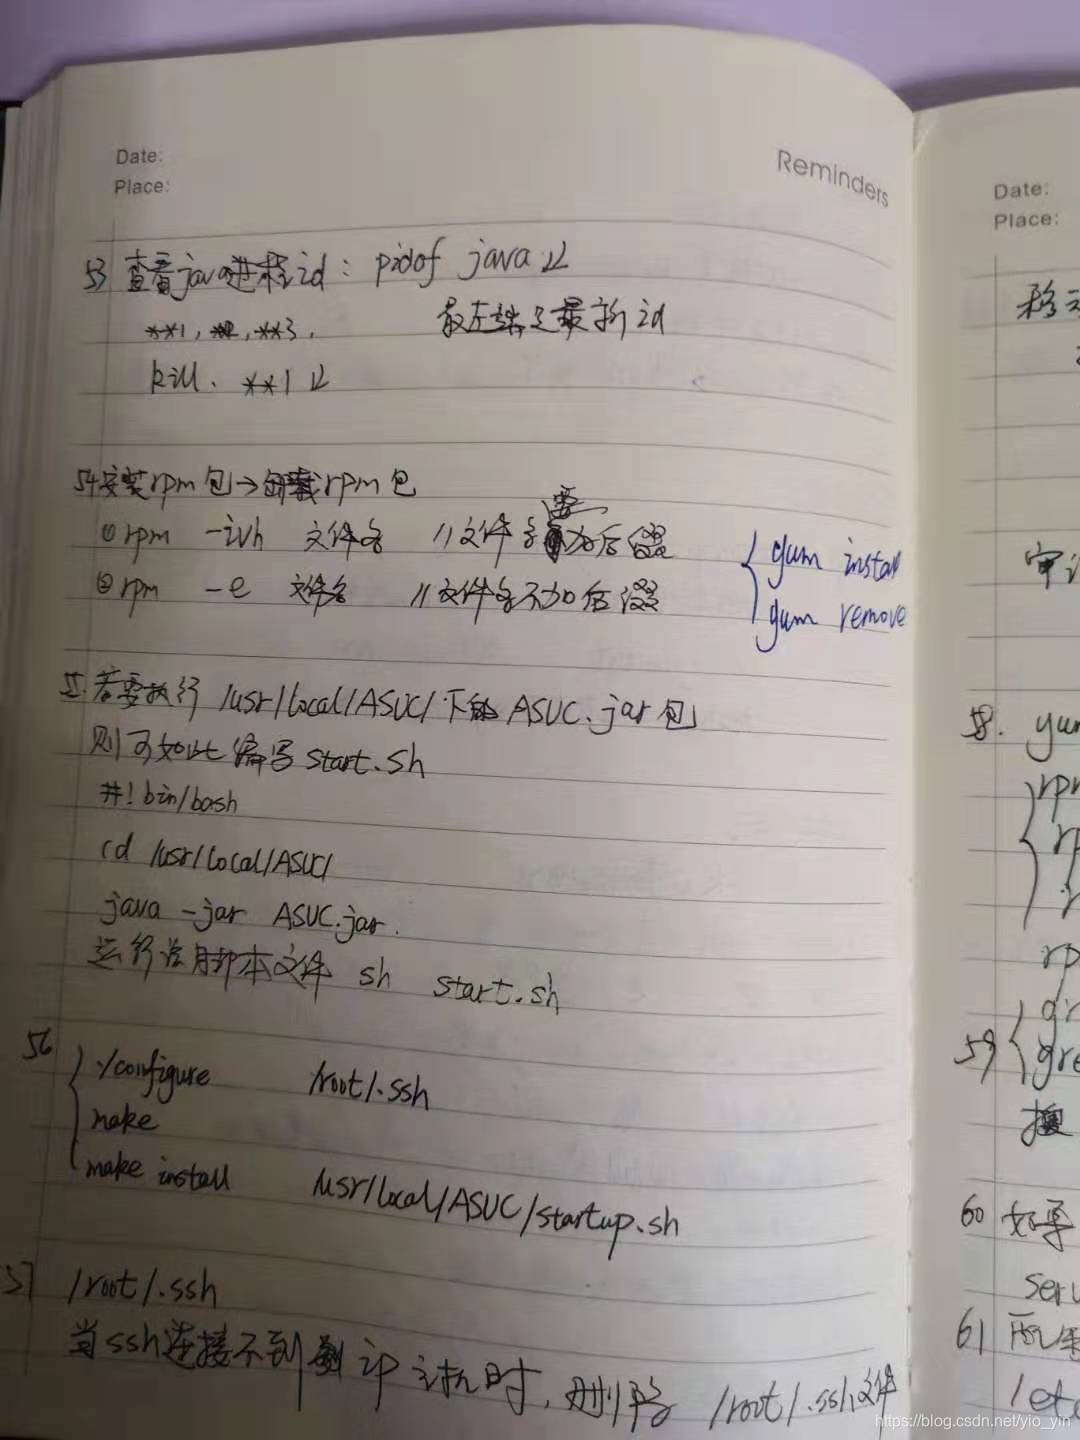 Date:
Place:
Reminders
53 查看java进程id: pidof java ↲
**1, **2, **3. 最左端是最新id
kill. **1 ↲
54安装rpm包→卸载rpm包
①rpm -ivh 文件名 //文件名需加后缀
②rpm -e 文件名 //文件名不加后缀
{ yum install
yum remove
若要执行 /usr/local/ASUC/下的 ASUC.jar包
则可如此编写 start.sh
#! bin/bash
cd /usr/local/ASUC/
java -jar ASUC.jar.
运行该脚本文件 sh start.sh
56 { ./configure /root/.ssh
make
make install /usr/local/ASUC/startup.sh
57 /root/.ssh
当ssh连接不到 ip 主机时, 删除 /root/.ssh文件
Date:
Place:
移动
审计
58. yum
rpm
rp
rp
59 { gr
gre
搜
60 如
61 配
/etc
https://blog.csdn.net/yio_yin